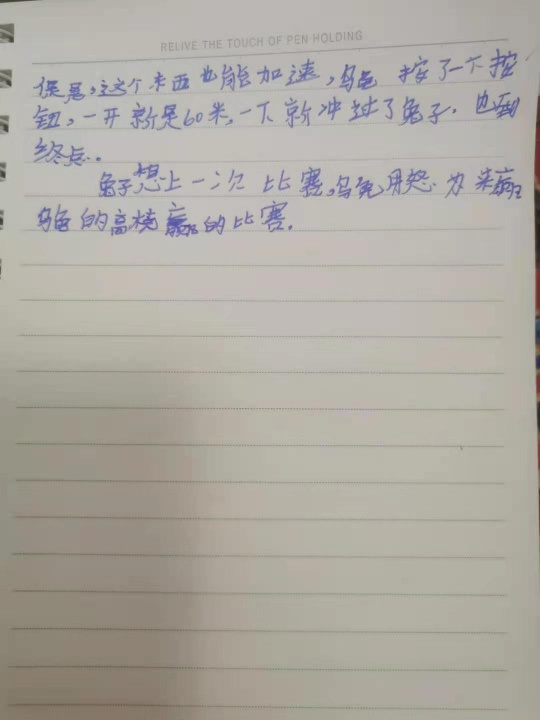 RELIVE THE TOUCH OF PEN HOLDING
这个东西也能加速,乌龟 按了一下按
钮,一开就是60米,一下就冲过了兔子.也到
终点..
兔子想上一次比赛,乌龟用 为来
乌龟的高 赢的比赛.